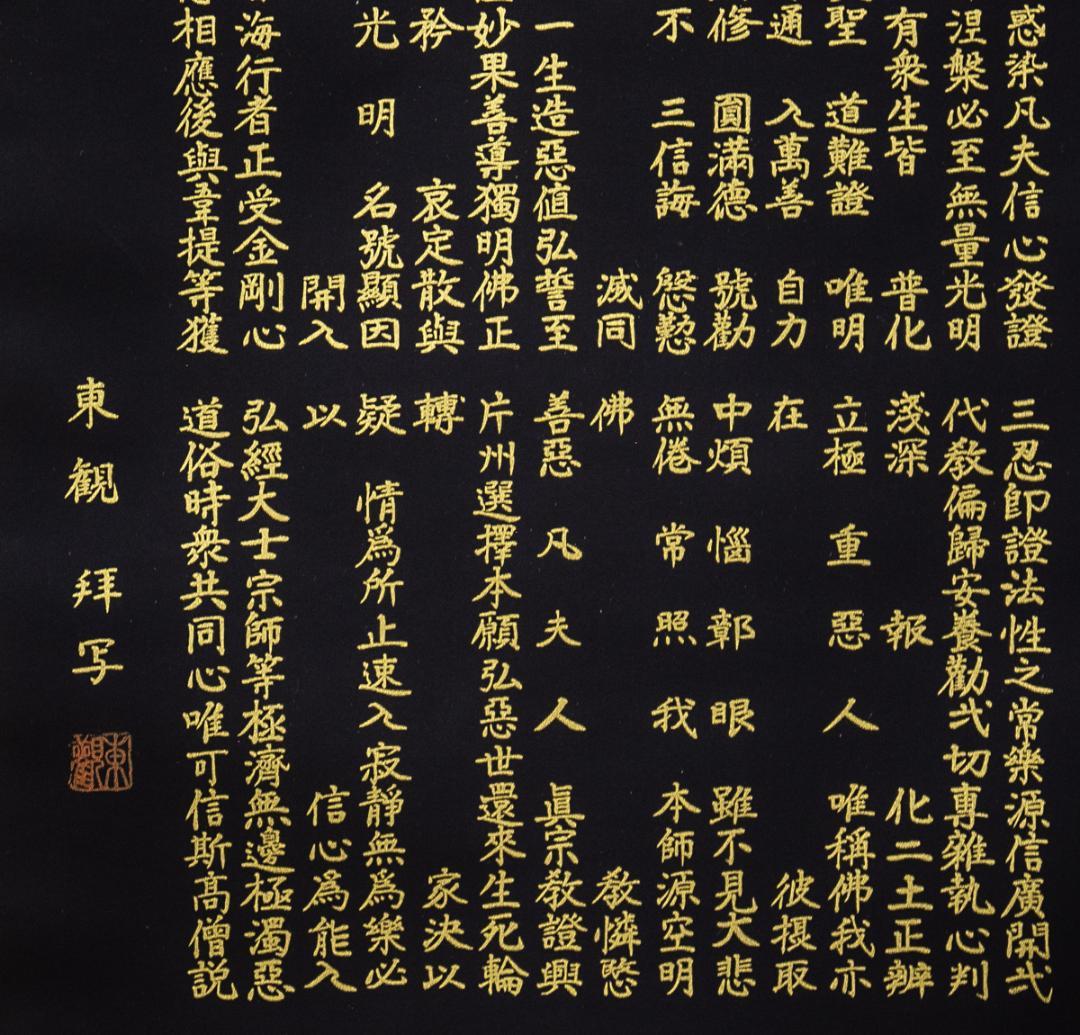 惑染凡夫信心發證
涅槃必至無量光明
有衆生皆 普化
聖 道難證 唯明
通 入萬善 自力
修 圓滿德 號勸
不 三信誨 慇懃
滅同
一生造惡値弘誓至
妙果善導獨明佛正
矜 哀定散與
光 明 名號顯因
開入
海行者正受金剛心
相應後與韋提等獲
三忍即證法性之常樂源信廣開弌
代敎偏歸安養勸弌切專雜執心判
淺深 報 化二土正辨
立極 重 惡 人 唯稱佛我亦
在 彼摂取
中煩 惱 鄣 眼 雖不見大悲
無倦 常 照 我 本師源空明
佛 敎憐愍
善惡 凡 夫 人 眞宗敎證興
片州選擇本願弘惡世還來生死輪
轉 家決以
疑 情爲所止速入寂靜無爲樂必
以 信心爲能入
弘經大士宗師等極濟無邊極濁惡
道俗時衆共同心唯可信斯高僧説
東観 拝写
東觀